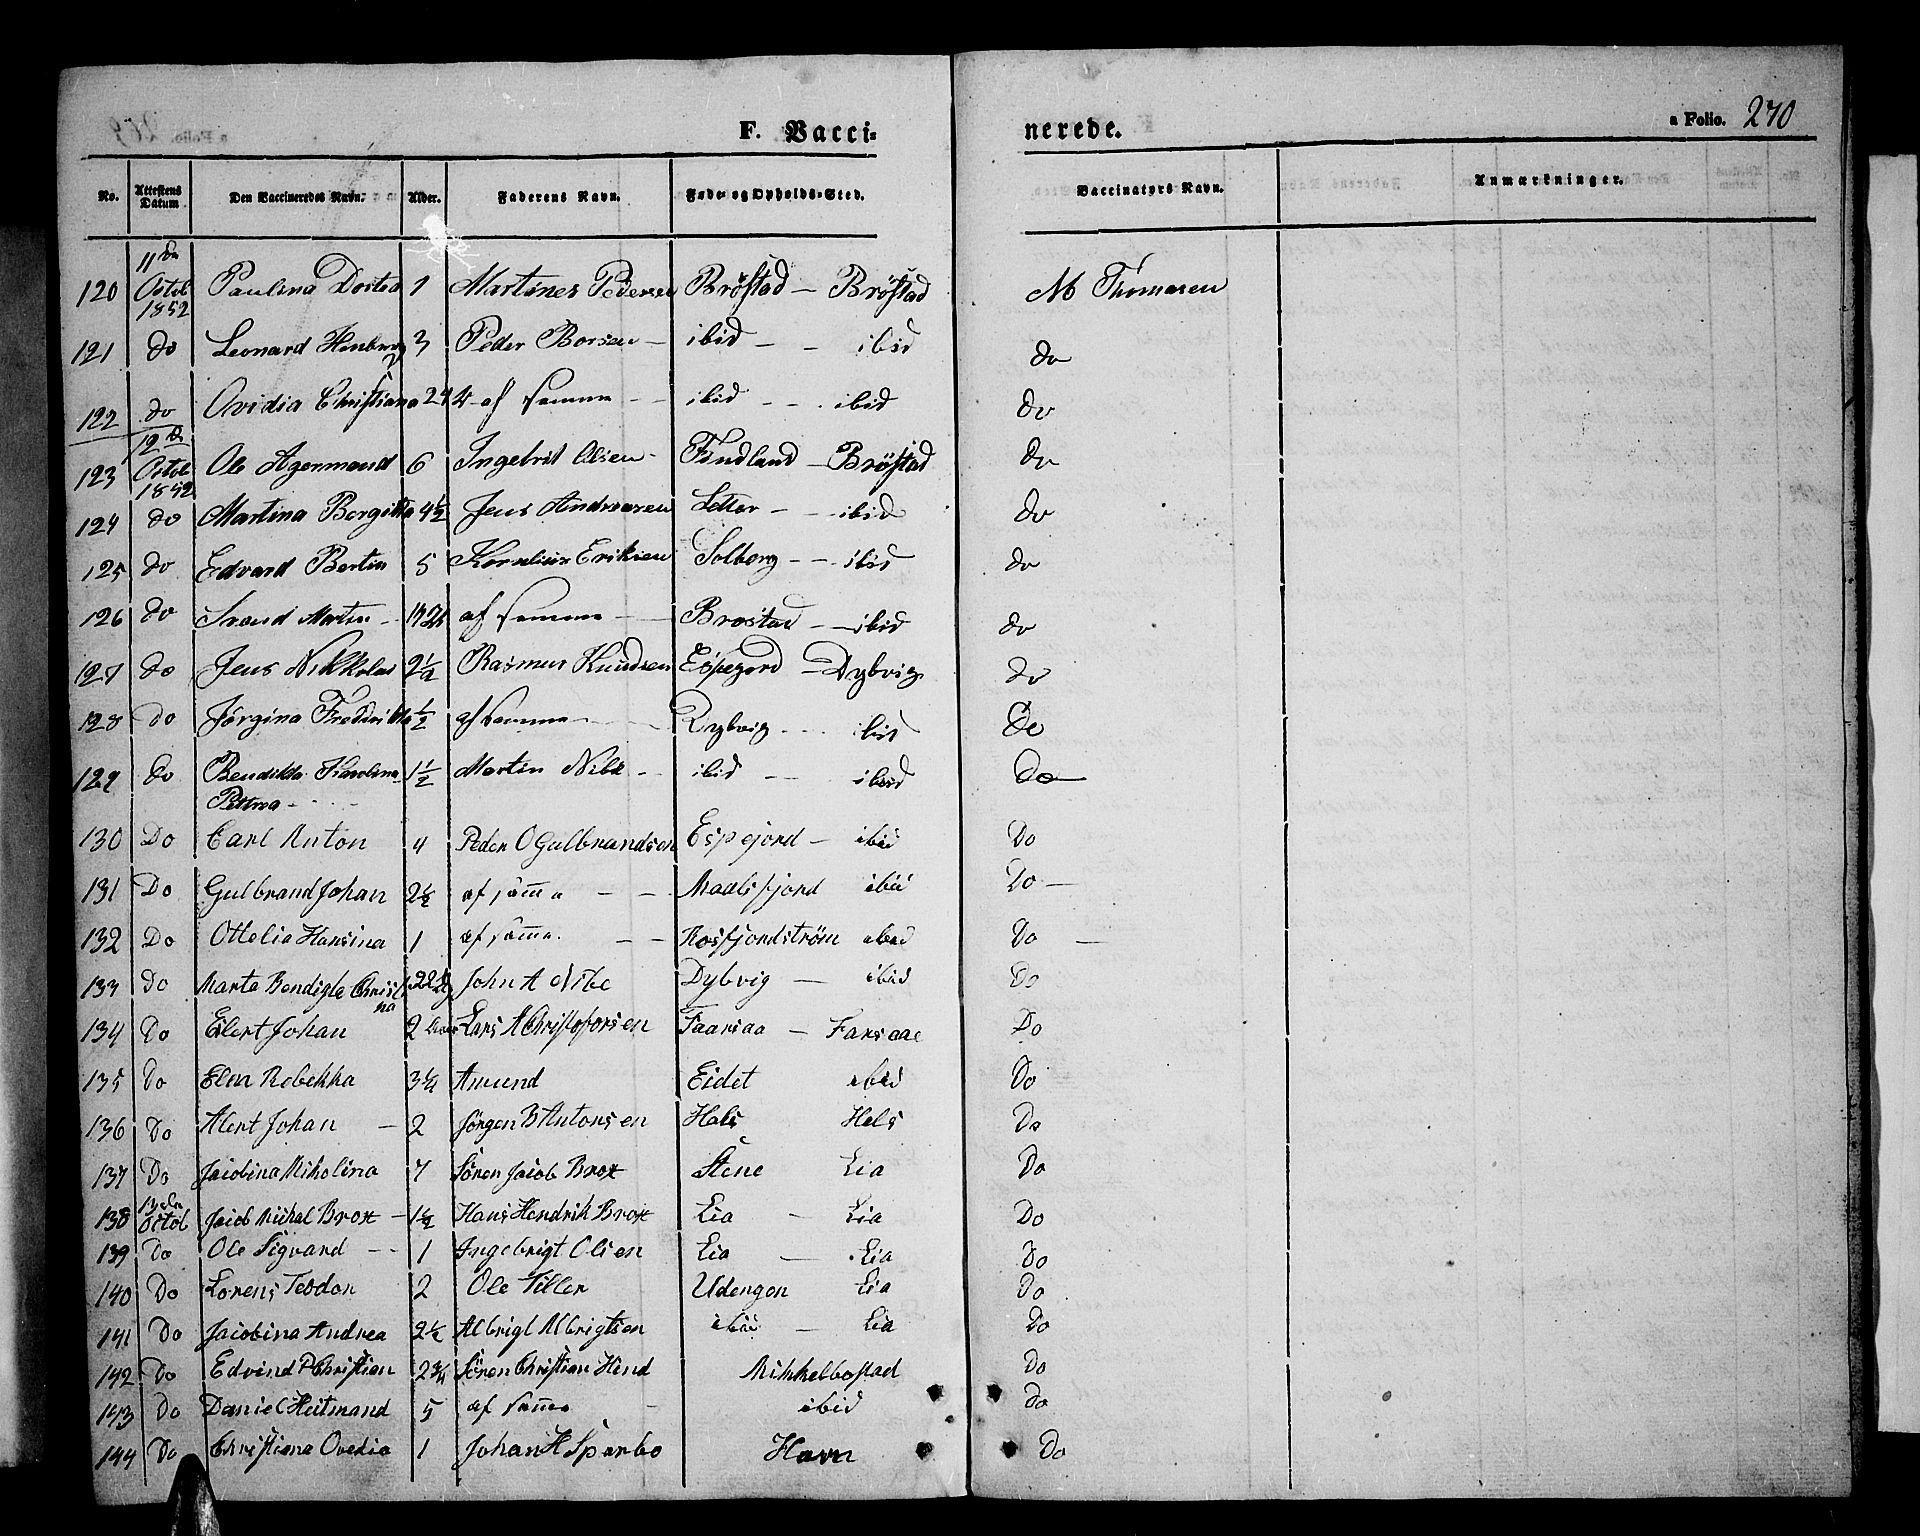 F. Vacci=
nerede.
a Folio. 270
No. Attestens Datum Den Vaccineredes Navn. Alder. Faderens Navn. Føde- og Opholds-Sted. Vaccinatørs Navn. Anmærkninger.
120 11 Octob 1852 Paulina Dortea 1 Martines Pedersen Bröstad – Bröstad M Thomasen
121 do Leonard 3 Peder Borsen – ibid – – ibid do
122 do Ovidia Christiana af samme – – ibid – – . ibid do
123 12 Octob 1852 Ole Agenmand 6 Ingebrit Olsen – Findland – Bröstad do
124 do Martina Bergitta 4½ Jens Andreasen – – ibid do
125 do Edvard Bertin 5 Kornelius Eriksen Solberg – – ibid do
126 do Martin – af samme – – Brostad – – ibid do
127 do Jens Nikkolai 2½ Rasmus Knudsen Espegord – Dybvig do
128 do Jörgina ½ af samme – – Dybvig – – . ibid do
129 do Bendikta Karolina 1½ Martin Nibe – – ibid – – ibid Do
Petrina – . . –
130 Do Carl Anton 4 Peder O Gulbrandsen Espejord – ibid Do
131 Do Gulbrand Johan 2½ af samma – – Maalsfjord ibid Do –
132 Do Ottelia Hansina 1 af samma. – – Rosfjordström ibid Do –
133 Do Marta Bendigte Christina John A Nibe Dybvig – ibid Do
134 Do Elert Johan 2 Lars A Christofersen Faarsaa – Farsaae Do
135 Do Elen Rebekka 3¼ Amund Eidet ibid Do
136 Do Alert Johan – 2 Jørgen B Antonsen Hals Hals Do
137 Do Jacobina Nikolina 7 Sören Jacob Brox Stene Lia Do
138 13den Octob Jacob Mikal Brox – 1½ Hans Hendrik Brox Lia – Lia Do
139 Do Ole Sigvard – – 1 Ingebrigt Olsen Lia – Lia Do
140 Do Lorens Teodor 2 Ole Tiller Udengon Lia Do
141 Do Jacobina Andrea 2½ Albrigt Albrigtsen ibid – Lia Do
142 Do Edvind P Christian 2¾ Sören Christian Hind Mikkelbostad Do
143 Do Daniel Heitmand 5 af samma – ibid Do
144 Do Christiana Ovedia 1 Johan H Sparbo Havn Do